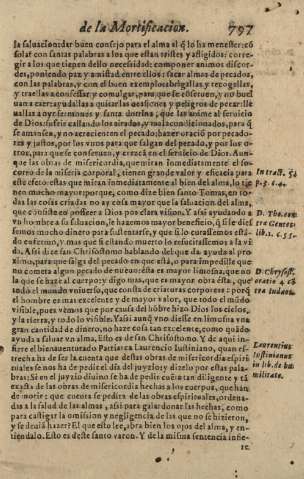 de la Mortificacion. 797
la saluaciõ: dar buen consejo para el alma al q̃ lo ha menester: cõ
solar con santas palabras a los que estan tristes y afligidos: corre-
gir a los que tienen dello necessidad: componer animos discor-
des, poniendo paz y amistad entre ellos: sacar almas de pecados,
con las palabras, y con el buen exemplo: obligallas y recogellas,
y traellas a confessar y comulgar, para que se cõseruen, y no bus-
uan a caer: ayudallas a quitarlas ocasiones y peligros de pecar: lle-
uallas a oyr sermones y santa doctrina, que las anime al seruicio
de Dios: sufrir callando los ayrados, y no los condenados, para q̃
se amansen, y no acrecienten el pecado: hazer oraciõ por pecado-
res y justos, por los viuos para que salgan del pecado, y por los o-
tros, para que se conseruen, y crezcã en el seruicio de Dios. Aun-
que las obras de misericordia, que miran inmediatamente el so-
corro de la miseria corporal, tienen grande valor y eficacia para
este efeto: estas que miran inmediatamente al bien del alma, lo tie
nen mucho mayor: porque, como dize bien santo Tomas, en to-
das las cosas criadas no ay cosa mayor que la saluacion del alma,
que consiste en posseer a Dios por clara vision. Y assi ayudando a
vn hombre a su saluacion, le hazemos mayor beneficio, q̃ si le dies-
semos mucho dinero para sustentarse, y que si lo curassemos estã-
do enfermo, y mas que si estando muerto lo resucitassemos a la vi
da. Assi dize san Chrisostomo hablando del que da ayuda al pro
ximo, para que salga del pecado en que està, o para impedille que
no cometa algun pecado de nueuo: esta es mayor limosna, que no
la que se haze al cuerpo: y digo mas, que es mayor obra esta, que
todo el mundo visiuo, que consta de criaturas corporeas: porq̃
el hombre es mas excelente y de mayor valor, que todo el mũdo
visible, pues vemos que por causa del hõbre hizo Dios los cielos,
y la tierra, y todo lo visible. Y assi aunq̃ vno diesse en limosna vn
gran cantidad de dinero, no haze cosa tan excelente, como quãdo
ayuda a saluar vn alma. Esto es de san Chrisostomo. Y de aqui in-
fiere el bienauenturado Patriarca Laurencio Iustiniano, quan es-
trecha ha de ser la cuenta que destas obras de misericordia espiri
tuales se nos ha de pedir el dia del juyzio: y dizelo por estas pala-
bras: Si en el juyzio diuino se ha de pedir cuẽta tan diligente y tã
exacta de las obras de misericordia hechas a los cuerpos, que han
de morir: que cuenta se pedira de las obras espirituales, ordena-
das a la salud de las almas, assi para galardonar las hechas, como
para castigar la omission y negligencia, de las que no se hizieron,
y se deuiã hazer? El que esto lee, abra bien los ojos del alma, y en-
tiendalo. Esto es deste santo varon. Y de la misma sentencia infie-
re
In tract. 54
D. Tho. con
tra Gentes
lib. 1. c. 55.
D. Chrysost.
oratio 4. cõ
tra Iudæos.
Laurentius
Iustinianus
in lib. de hu
militate.